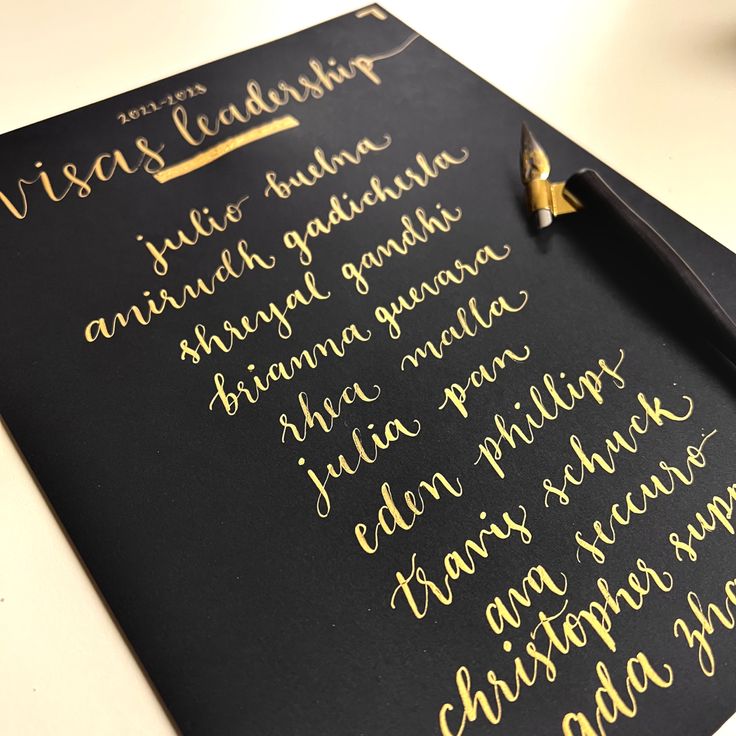 2022-2023
visas leadership
julio buelna
anirudh gadicherla
shreyal gandhi
brianna guevara
rhea malla
julia pan
eden phillips
travis schuck
ava seccuro
christopher
ada